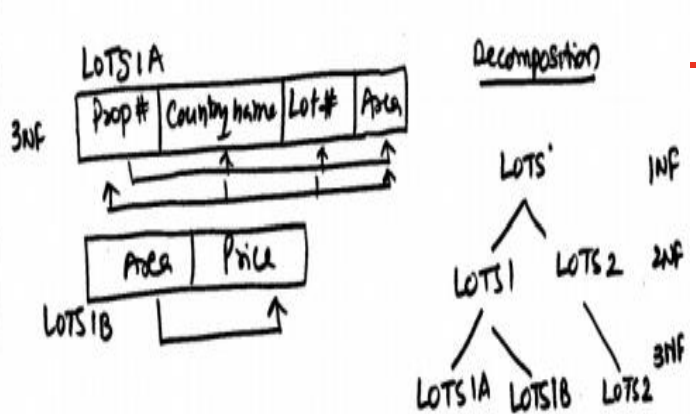 LOTS1A
3NF
Prop# Country name Lot# Area
Area Price
LOTS1B
Decomposition
LOTS 1NF
LOTS1 LOTS2 2NF
LOTS1A LOTS1B LOTS2 3NF